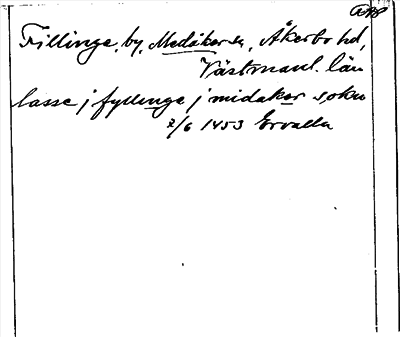 Fillinge, by, Medåker sn, Åkerbo hd,
Västmanl. län
lasse j fyllinge j midaker sokn
2/6 1453 Ervalla